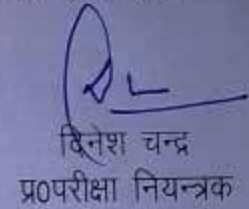 दिनेश चन्द्र
प्र०परीक्षा नियन्त्रक